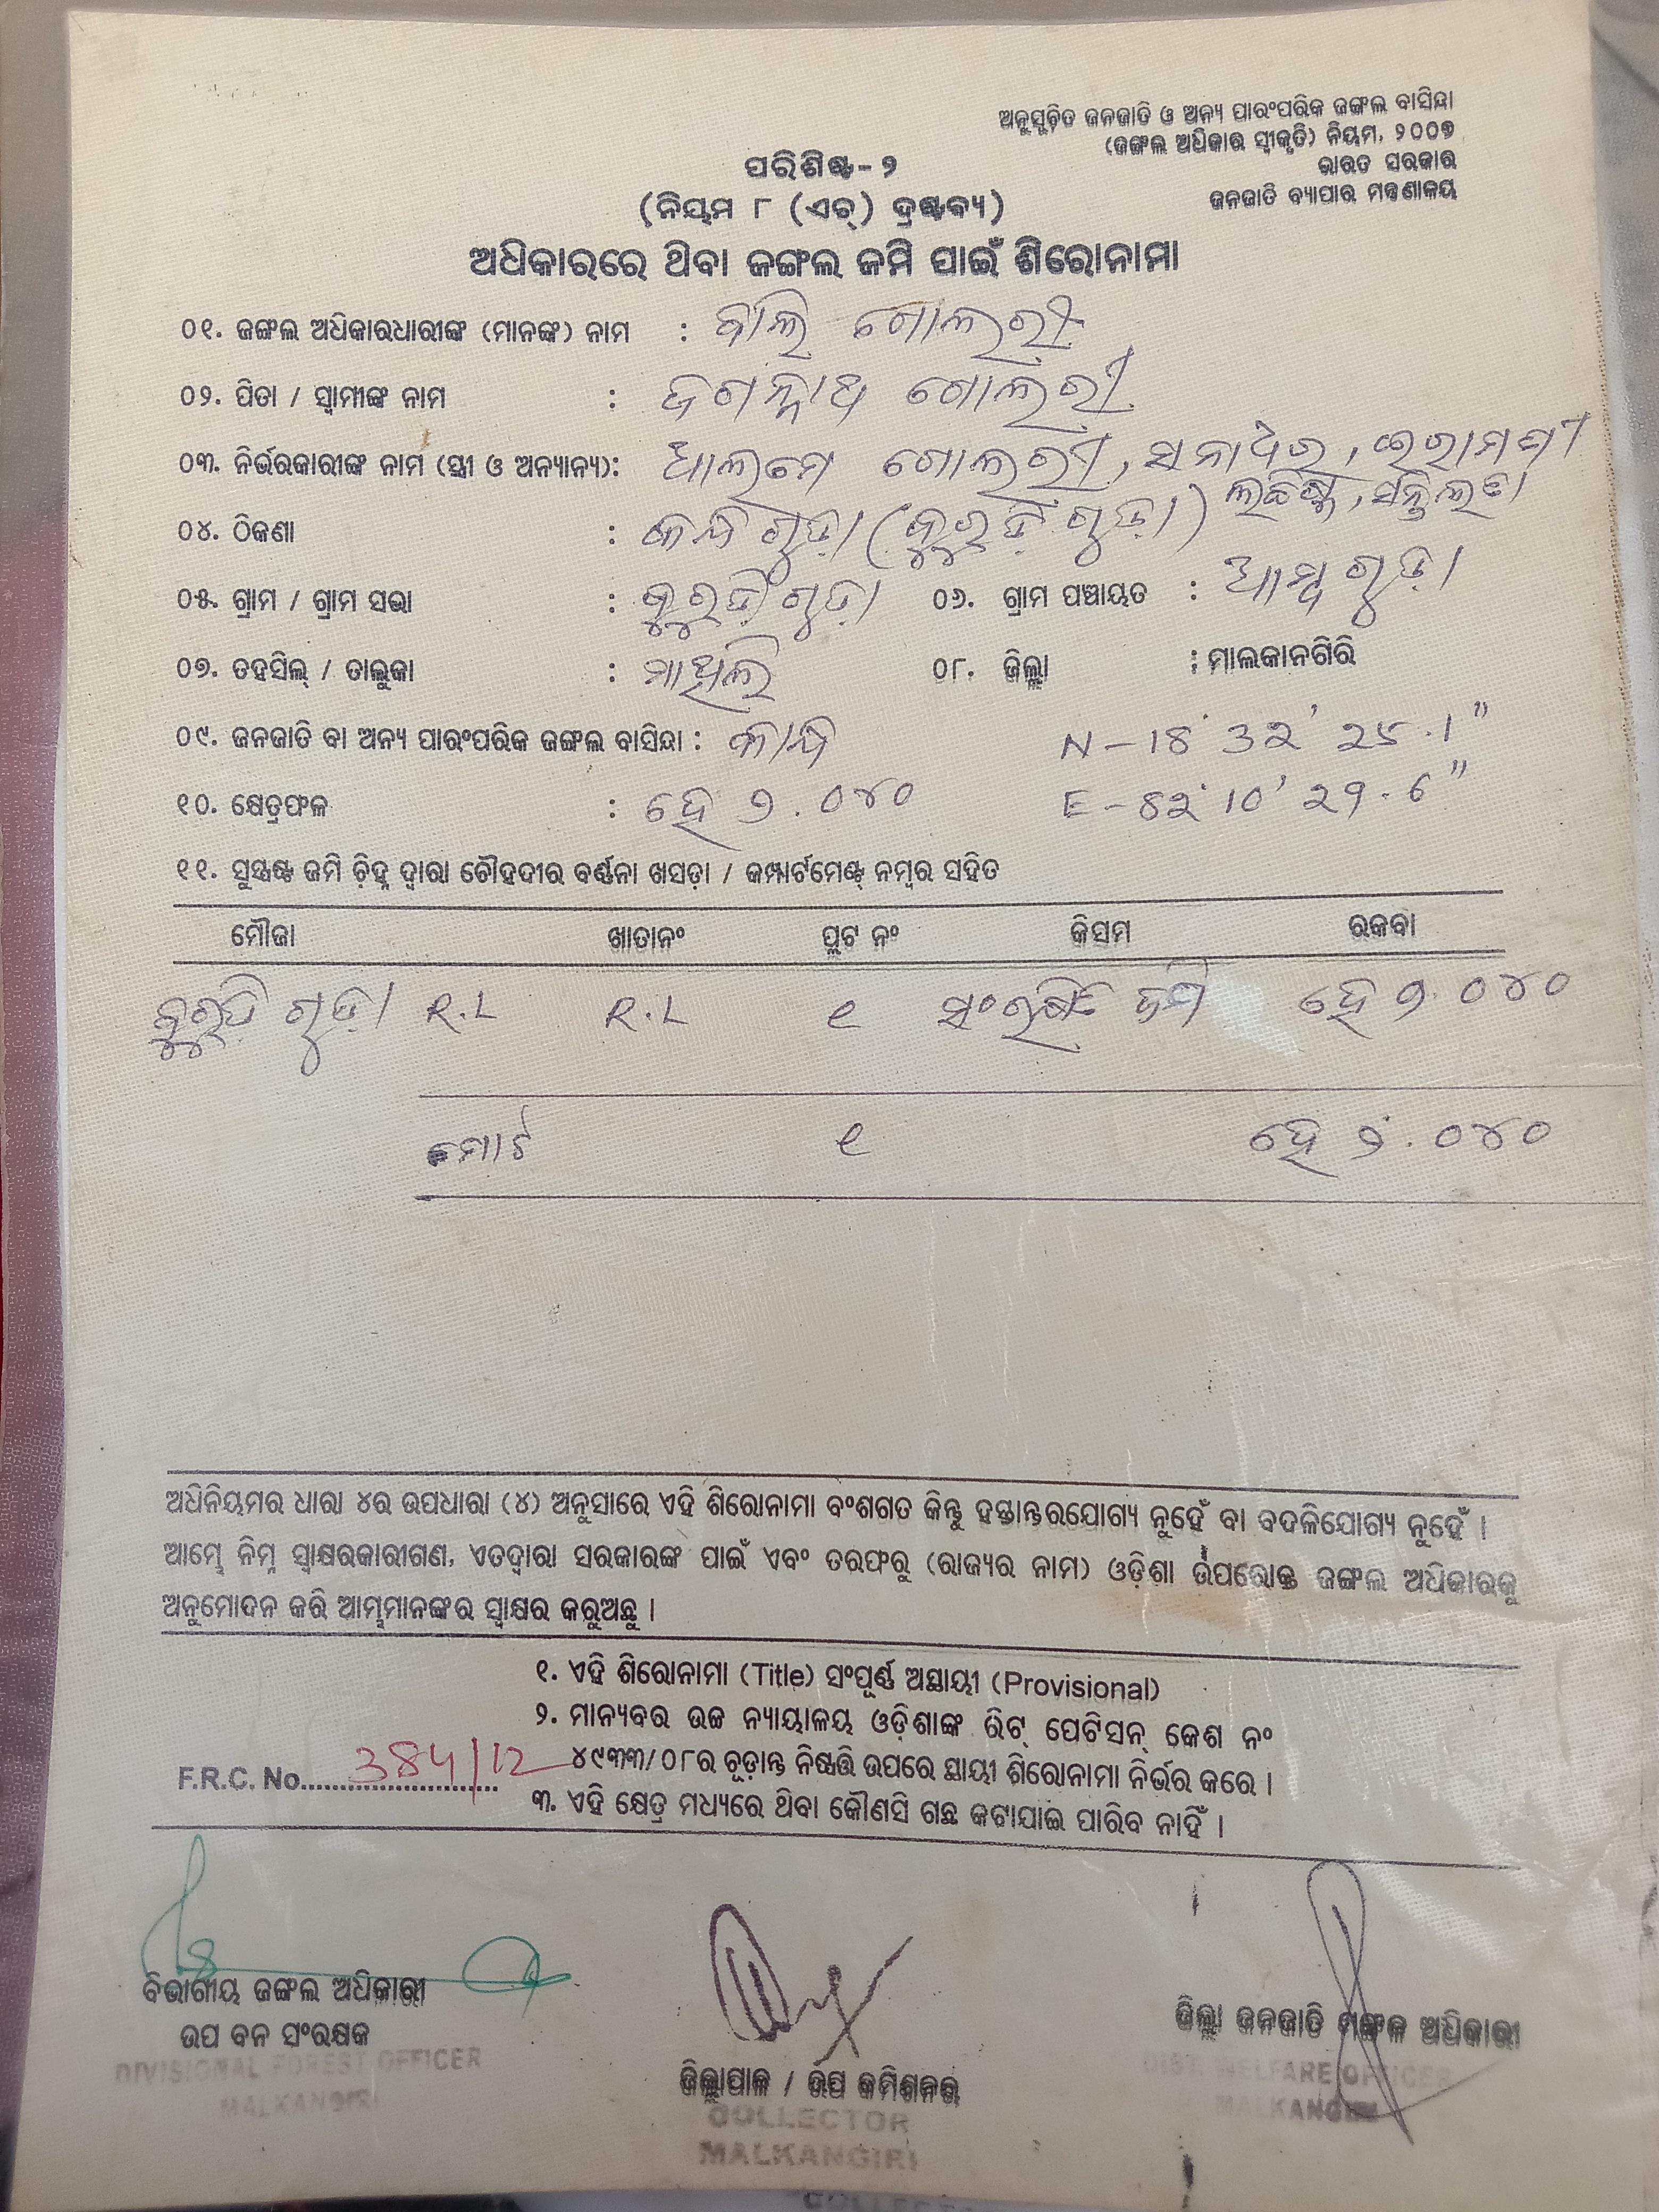 ଅନୁସୂଚିତ ଜନଜାତି ଓ ଅନ୍ୟ ପାରଂପରିକ ଜଙ୍ଗଲ ବାସିନ୍ଦା
(ଜଙ୍ଗଲ ଅଧିକାର ସ୍ୱୀକୃତି) ନିୟମ, ୨୦୦୭
ଭାରତ ସରକାର
ଜନଜାତି ବ୍ୟାପାର ମନ୍ତ୍ରଣାଳୟ
ପରିଶିଷ୍ଟ - ୨
(ନିୟମ ୮ (ଏଚ୍) ଦ୍ରଷ୍ଟବ୍ୟ)
ଅଧିକାରରେ ଥିବା ଜଙ୍ଗଲ ଜମି ପାଇଁ ଶିରୋନାମା
୦୧. ଜଙ୍ଗଲ ଅଧିକାରଧାରୀଙ୍କ (ମାନଙ୍କ) ନାମ : ବାଲି ଗୋଲରୀ
୦୨. ପିତା / ସ୍ୱାମୀଙ୍କ ନାମ : ଜଗନ୍ନାଥ ଗୋଲରୀ
୦୩. ନିର୍ଭରକାରୀଙ୍କ ନାମ (ସ୍ତ୍ରୀ ଓ ଅନ୍ୟାନ୍ୟ): ଗୋଲରୀ,
୦୪. ଠିକଣା : (କୁରୁଡିଗୁଡ଼ା)
୦୫. ଗ୍ରାମ / ଗ୍ରାମ ସଭା : କୁରୁଡିଗୁଡ଼ା ୦୬. ଗ୍ରାମ ପଞ୍ଚାୟତ : ଆମ୍ବଗୁଡ଼ା
୦୭. ତହସିଲ୍ / ତାଲୁକା : ମାଥିଲି ୦୮. ଜିଲ୍ଲା : ମାଲକାନଗିରି
୦୯. ଜନଜାତି ବା ଅନ୍ୟ ପାରଂପରିକ ଜଙ୍ଗଲ ବାସିନ୍ଦା : N - 18° 32' 25.1"
୧୦. କ୍ଷେତ୍ରଫଳ : ହେ ୨.୦୪୦ E - 82° 10' 29.6"
୧୧. ସୁସ୍ପଷ୍ଟ ଜମି ଚିହ୍ନ ଦ୍ୱାରା ଚୌହଦୀର ବର୍ଣ୍ଣନା ଖସଡ଼ା / କମ୍ପାର୍ଟମେଣ୍ଟ୍ ନମ୍ବର ସହିତ
ମୌଜା ଖାତାନଂ ପ୍ଲଟ ନଂ କିସମ ରକବା
କୁରୁଡିଗୁଡ଼ା R.L R.L ୧ ସଂରକ୍ଷିତ ଜମି ହେ ୨.୦୪୦
ମୋଟ ୧ ହେ ୨.୦୪୦
ଅଧିନିୟମର ଧାରା ୪ର ଉପଧାରା (୪) ଅନୁସାରେ ଏହି ଶିରୋନାମା ବଂଶଗତ କିନ୍ତୁ ହସ୍ତାନ୍ତରଯୋଗ୍ୟ ନୁହେଁ ବା ବଦଳିଯୋଗ୍ୟ ନୁହେଁ ।
ଆମ୍ଭେ ନିମ୍ନ ସ୍ୱାକ୍ଷରକାରୀଗଣ, ଏତଦ୍ୱାରା ସରକାରଙ୍କ ପାଇଁ ଏବଂ ତରଫରୁ (ରାଜ୍ୟର ନାମ) ଓଡ଼ିଶା ଉପରୋକ୍ତ ଜଙ୍ଗଲ ଅଧିକାରକୁ
ଅନୁମୋଦନ କରି ଆମ୍ଭମାନଙ୍କର ସ୍ୱାକ୍ଷର କରୁଅଛୁ ।
୧. ଏହି ଶିରୋନାମା (Title) ସଂପୂର୍ଣ୍ଣ ଅସ୍ଥାୟୀ (Provisional)
୨. ମାନ୍ୟବର ଉଚ୍ଚ ନ୍ୟାୟାଳୟ ଓଡ଼ିଶାଙ୍କ ରିଟ୍ ପେଟିସନ୍ କେଶ ନଂ
୪୯୩୩/୦୮ର ଚୂଡ଼ାନ୍ତ ନିଷ୍ପତ୍ତି ଉପରେ ସ୍ଥାୟୀ ଶିରୋନାମା ନିର୍ଭର କରେ ।
F.R.C. No. 384/12
୩. ଏହି କ୍ଷେତ୍ର ମଧ୍ୟରେ ଥିବା କୌଣସି ଗଛ କଟାଯାଇ ପାରିବ ନାହିଁ ।
ବିଭାଗୀୟ ଜଙ୍ଗଲ ଅଧିକାରୀ
ଉପ ବନ ସଂରକ୍ଷକ
DIVISIONAL FOREST OFFICER
MALKANGIRI
ଜିଲ୍ଲାପାଳ / ଉପ କମିଶନର
COLLECTOR
MALKANGIRI
ଜିଲ୍ଲା ଜନଜାତି ମଙ୍ଗଳ ଅଧିକାରୀ
DIST. WELFARE OFFICER
MALKANGIRI